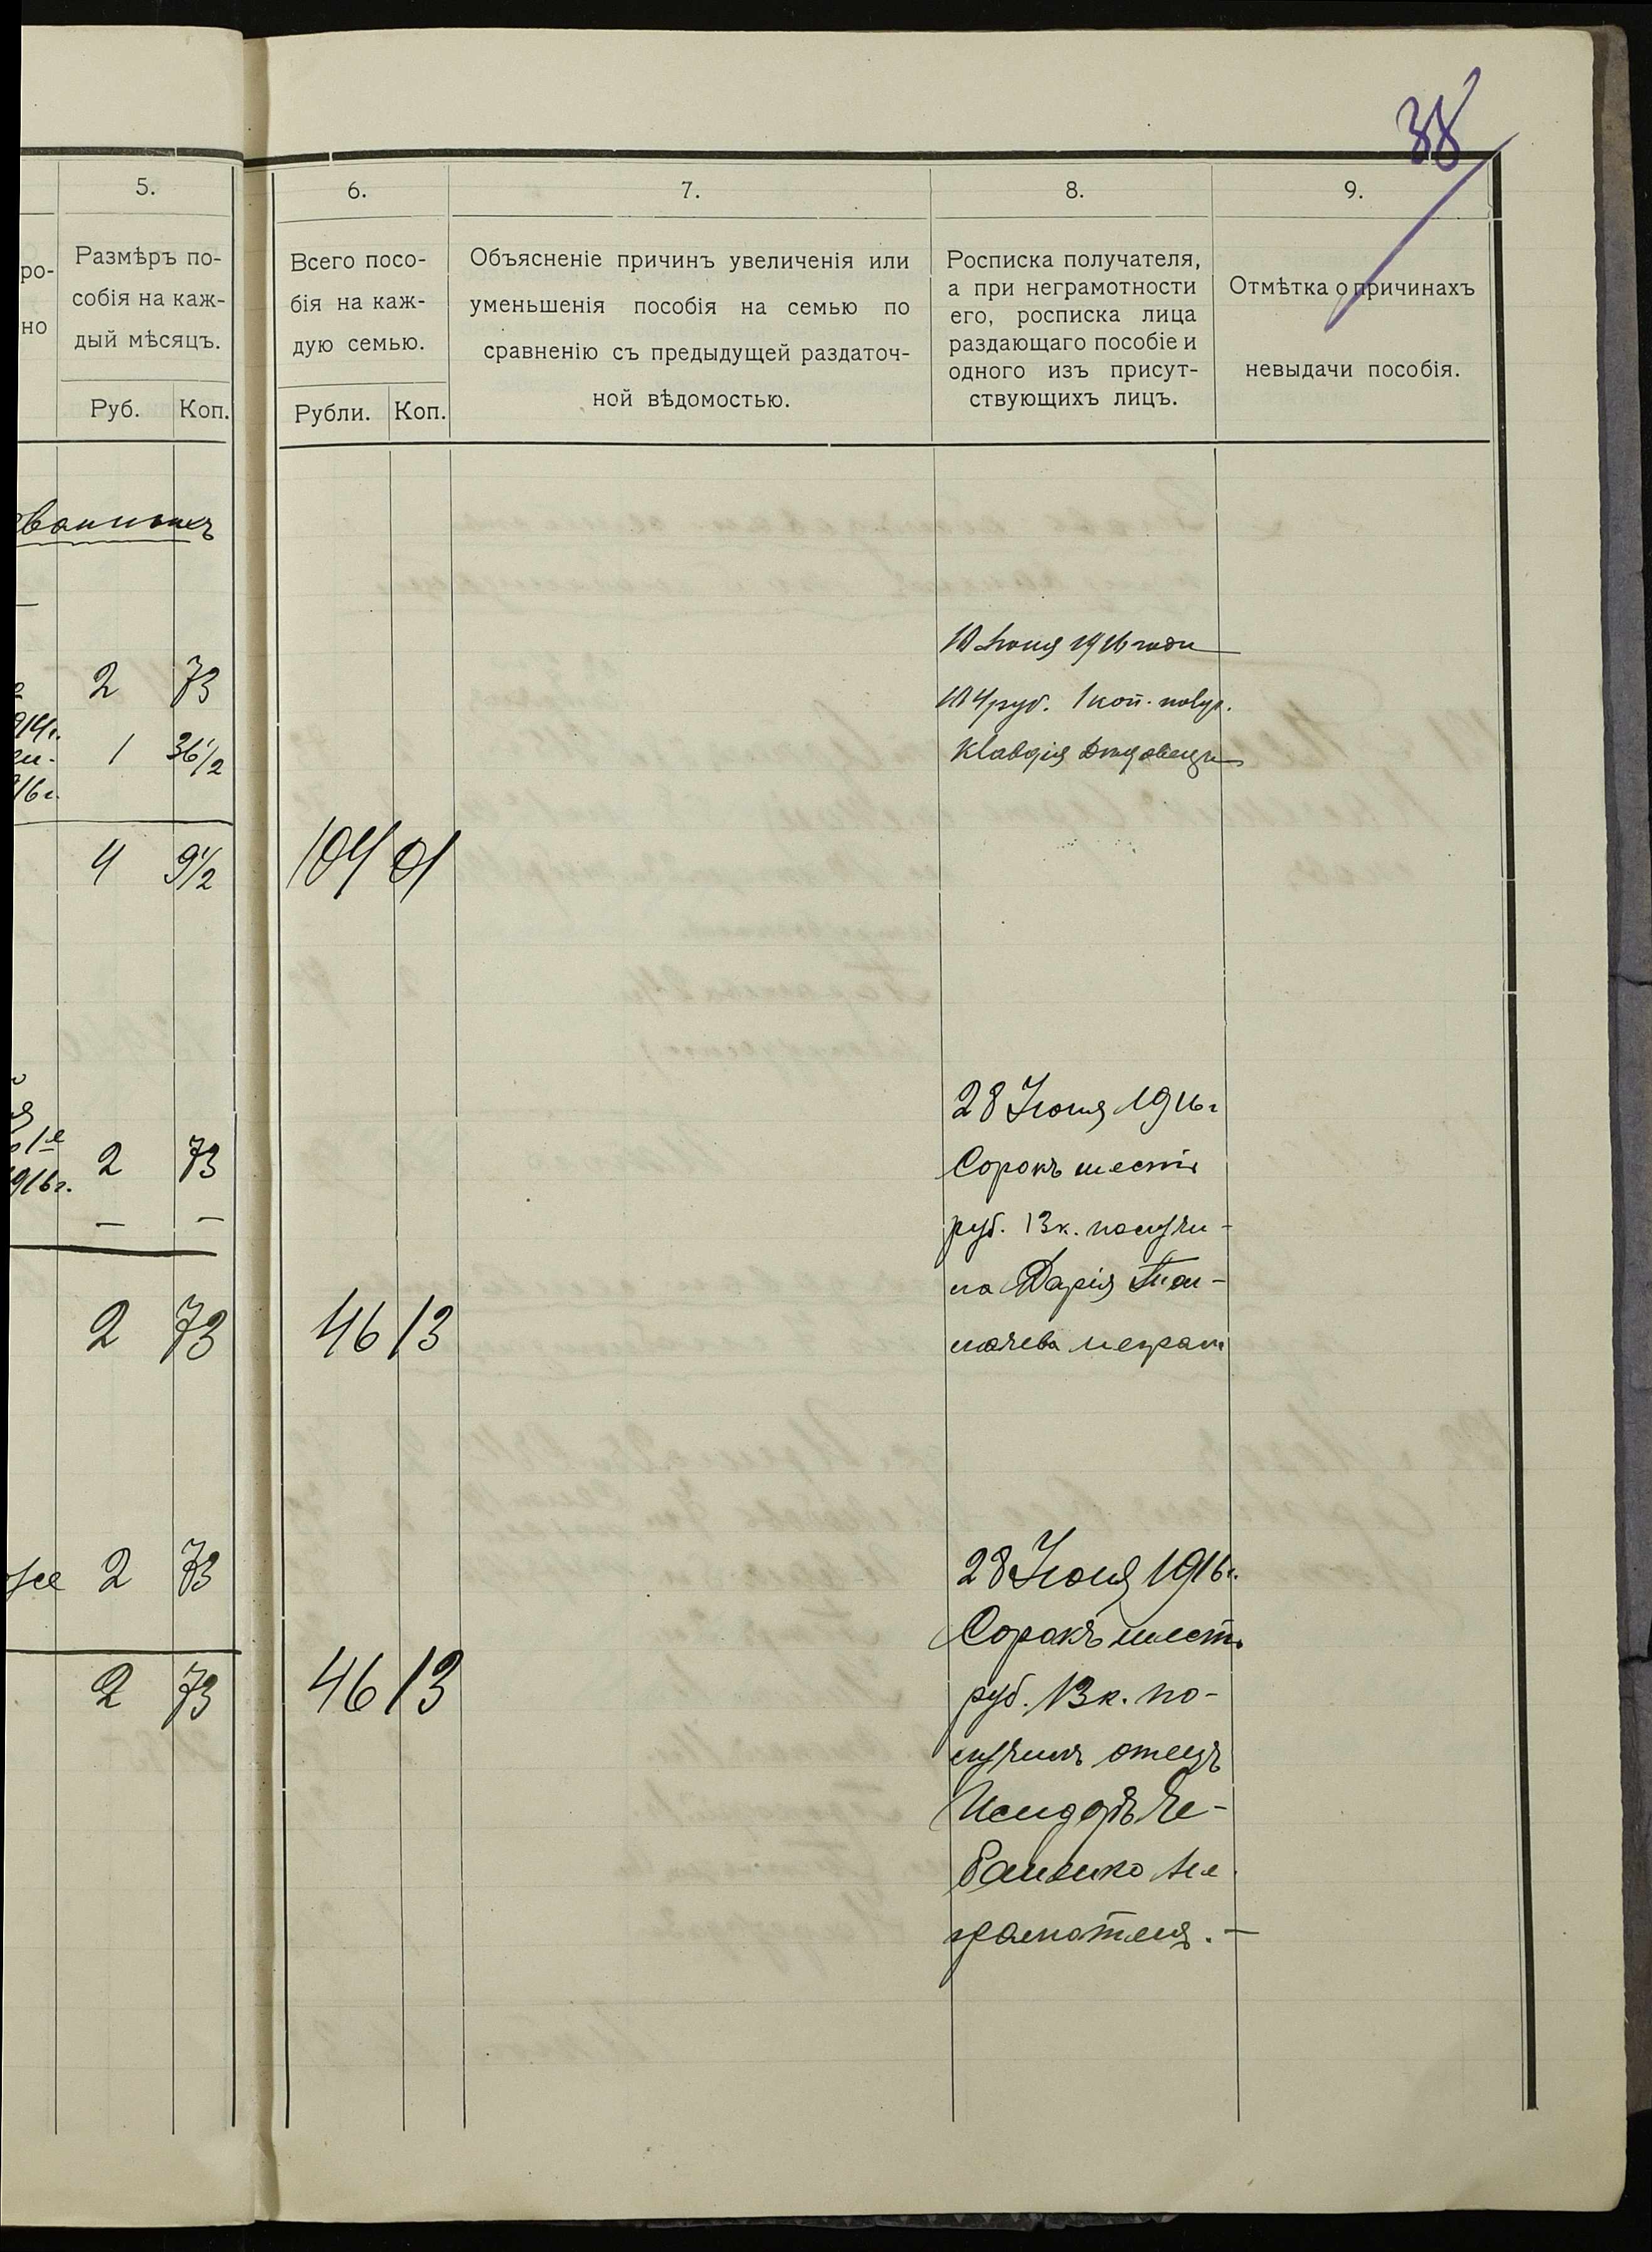 38
5.
Размѣръ по-
собія на каж-
дый мѣсяцъ.
Руб. Коп.
ро-
но
6.
Всего посо-
бія на каж-
дую семью.
Рубли. Коп.
7.
Объясненіе причинъ увеличенія или
уменьшенія пособія на семью по
сравненію съ предыдущей раздаточ-
ной вѣдомостью.
8.
Росписка получателя,
а при неграмотности
его, росписка лица
раздающаго пособіе и
одного изъ присут-
ствующихъ лицъ.
9.
Отмѣтка о причинахъ
невыдачи пособія.
ванныхъ
2 73
1 36 1/2
16 г.
4 9 1/2
104 01
10 Іюня 1916 года
104 руб. 1 коп. получ.
Клавдія
1 е
916 г. 2 73
— —
2 73
46 13
28 Іюня 1916 г
Сорокъ шесть
руб. 13 к. получи-
ла Дарія Тол-
мачева неграм
же 2 73
2 73
46 13
28 Іюня 1916 г.
Сорокъ шесть
руб. 13 к. по-
лучилъ отецъ
Исидоръ Че-
баненко не
грамотенъ. —